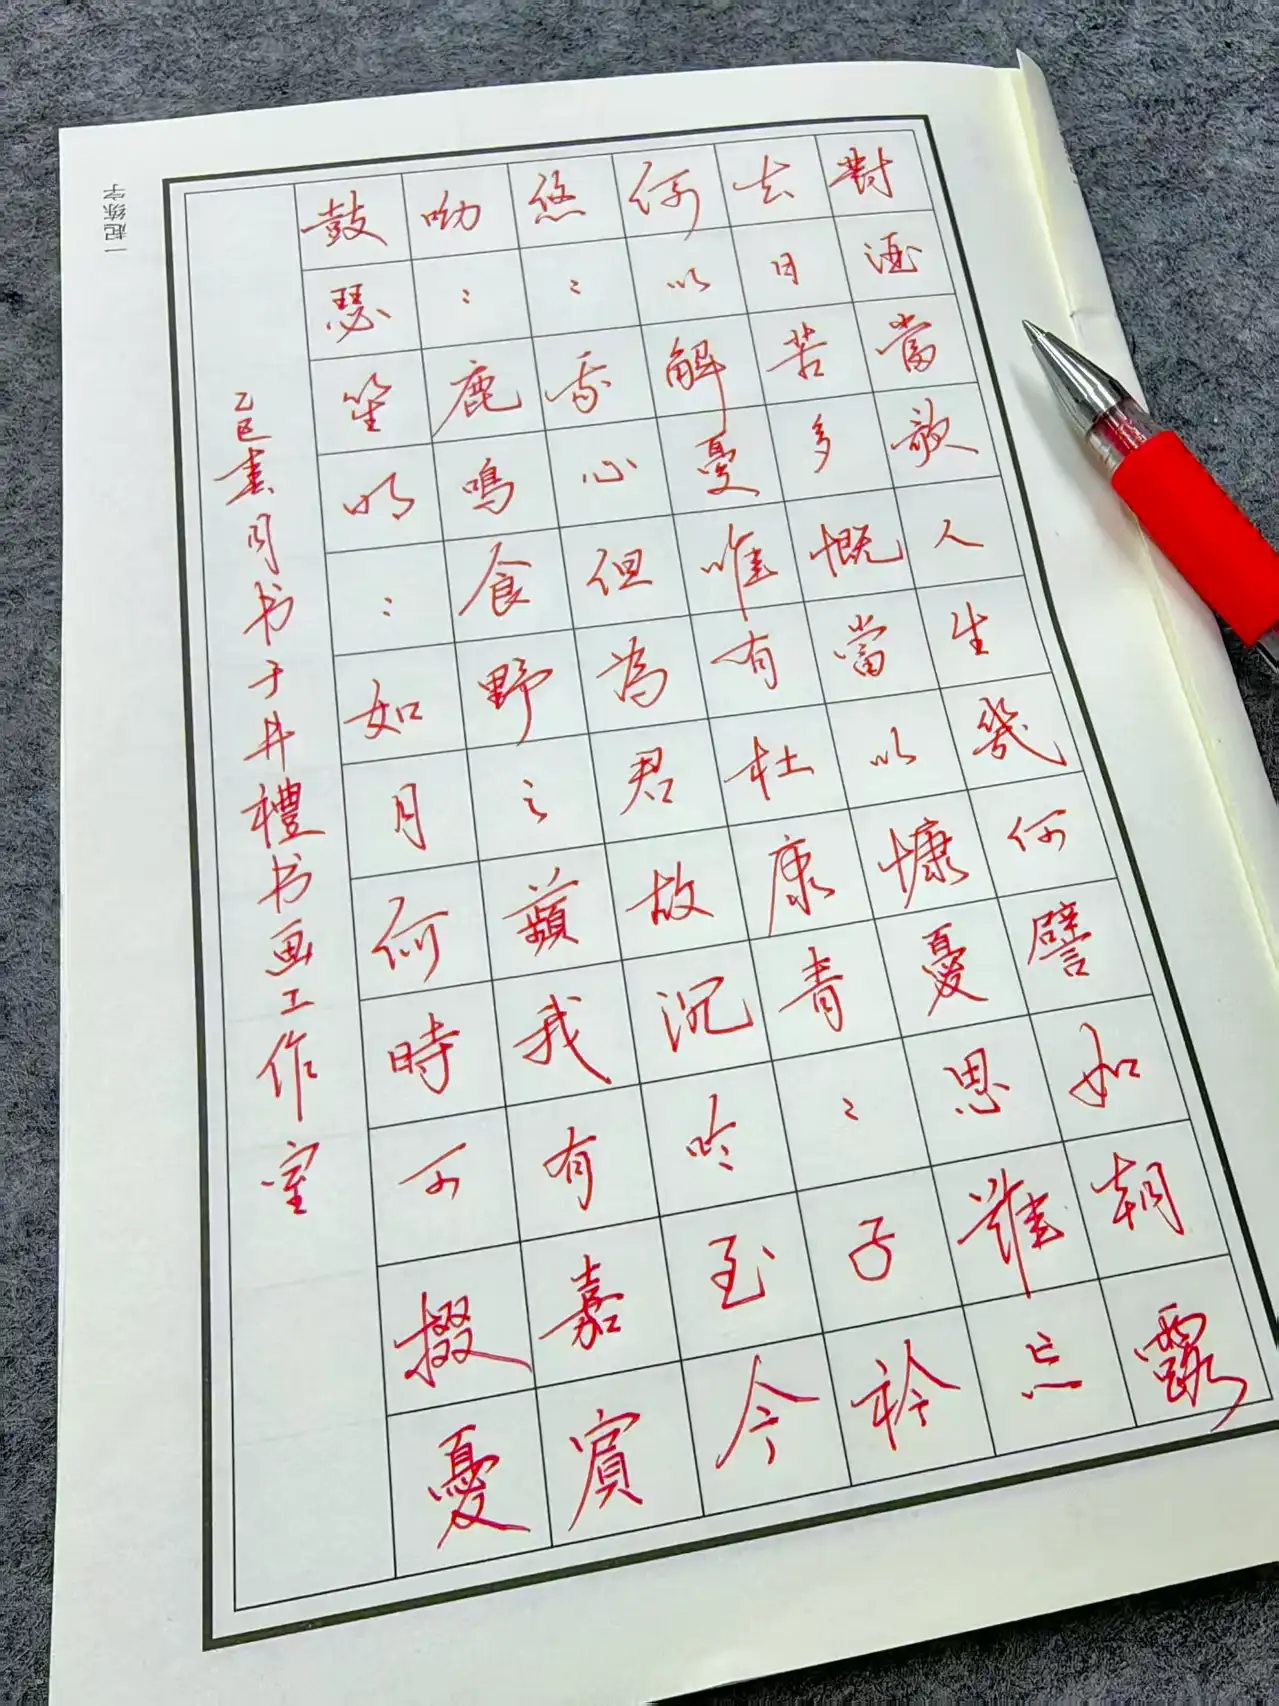 對酒當歌人生幾何譬如朝露
去日苦多慨當以慷憂思難忘
何以解憂唯有杜康青〻子衿
悠〻我心但為君故沉吟至今
呦〻鹿鳴食野之蘋我有嘉賓
鼓瑟笙明〻如月何時可掇憂
乙巳春月书于井禮书画工作室
一起练字